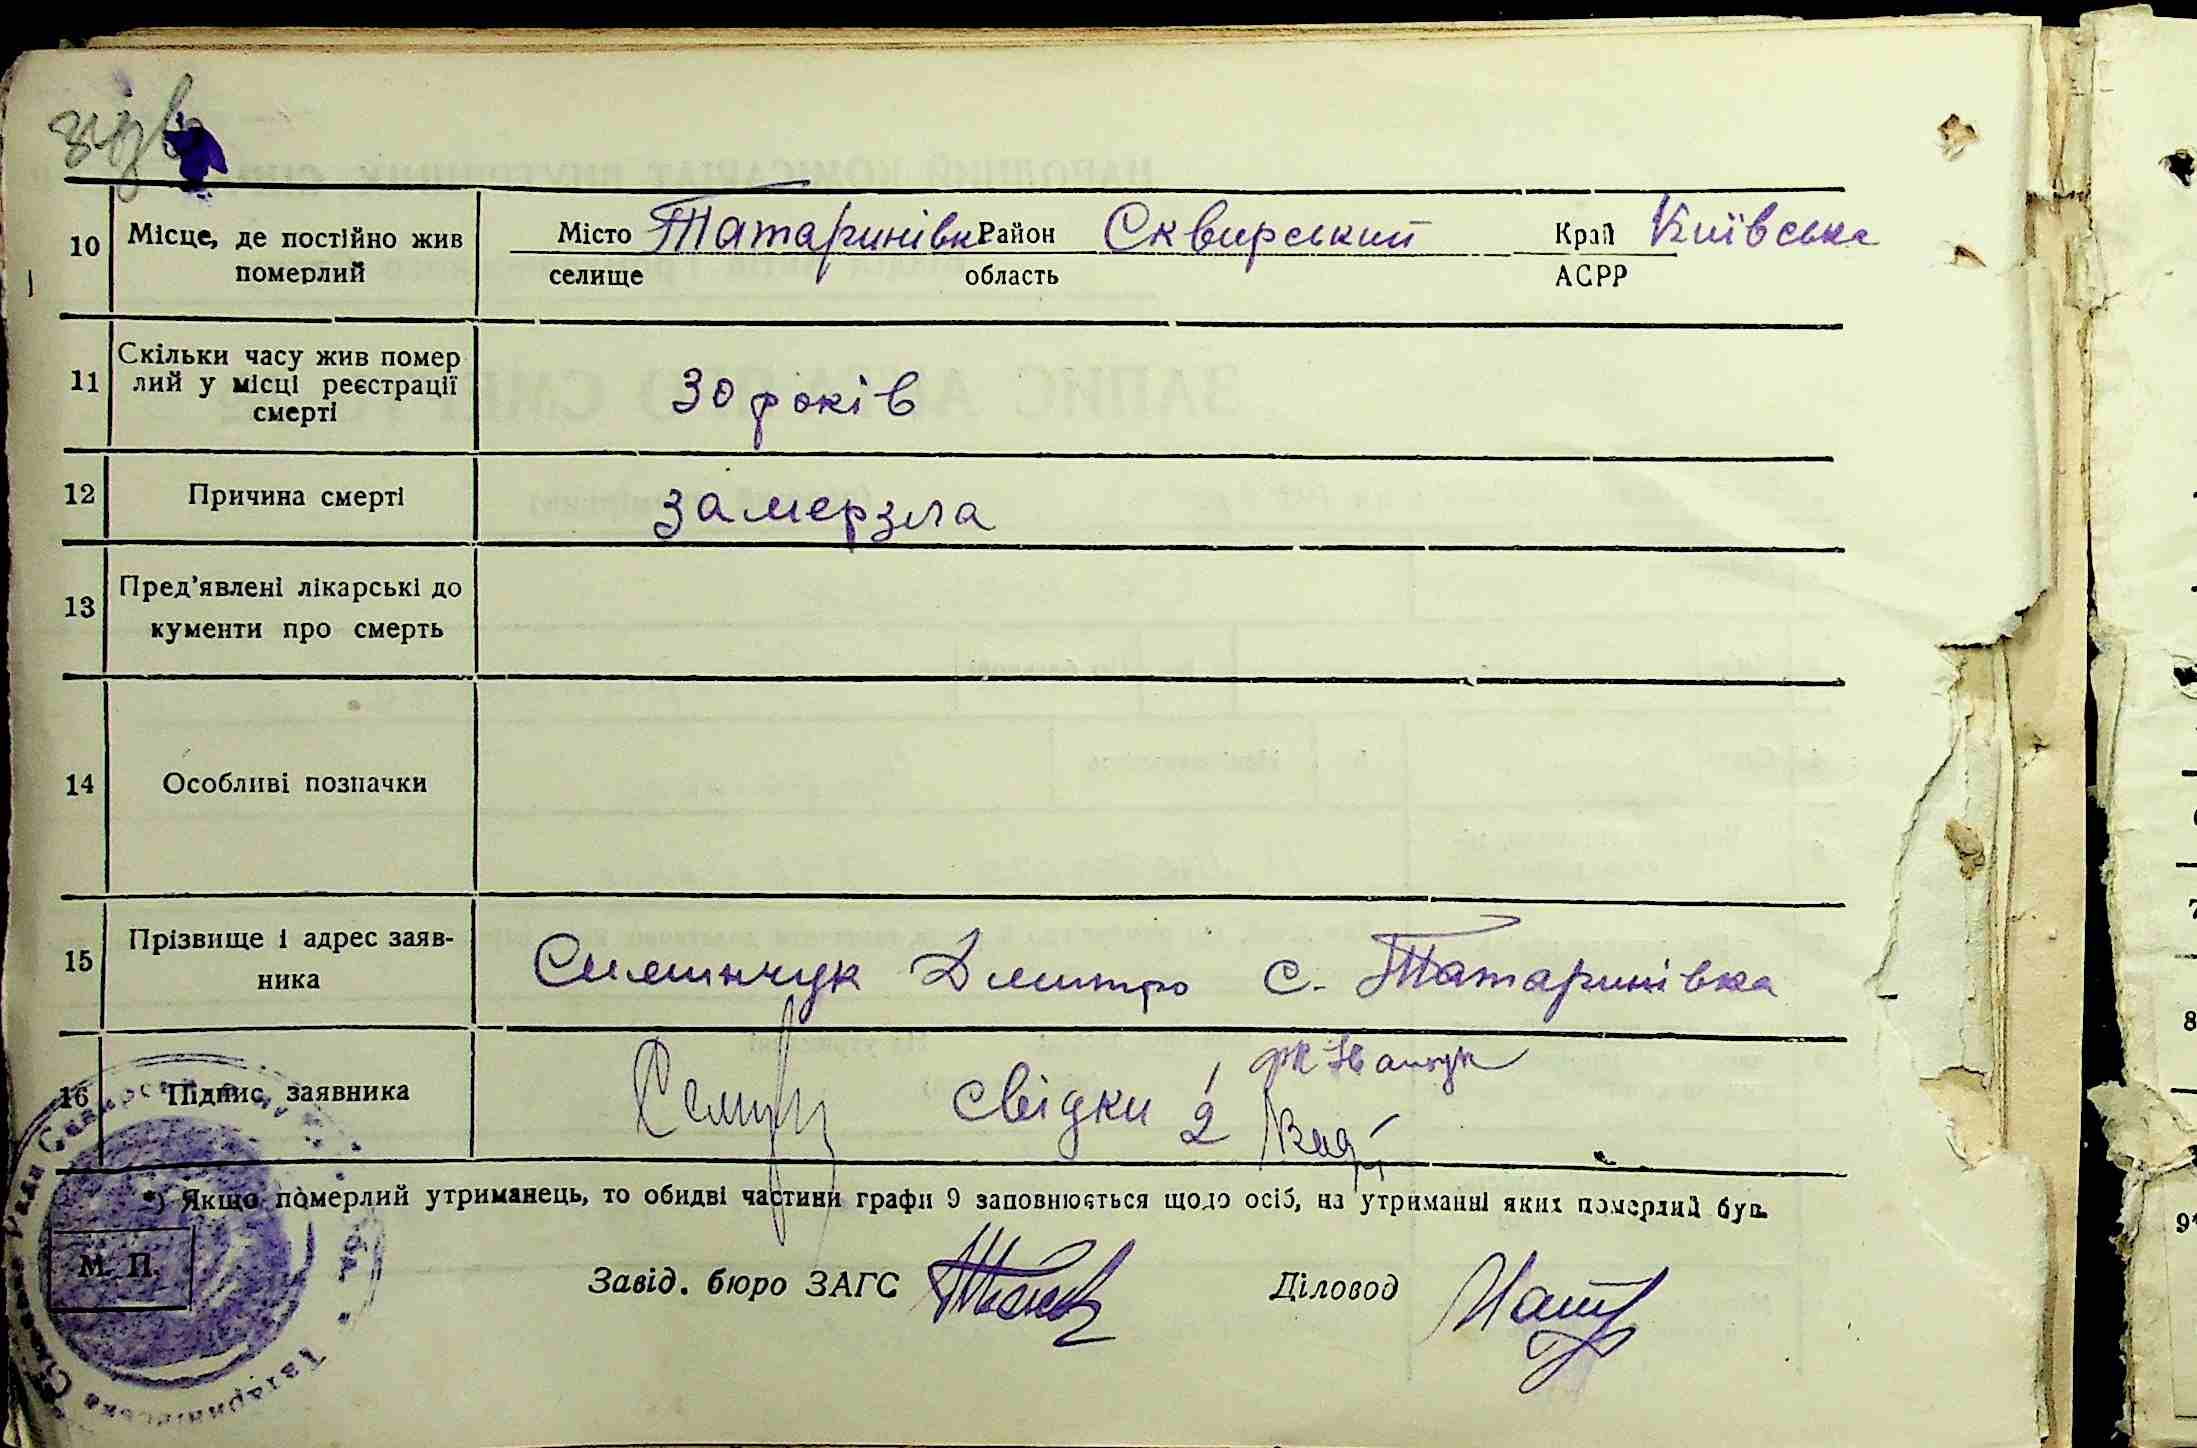 10 Місце, де постійно жив померлий
Місто Татаринівка Район Сквирський Край Київська
селище область АСРР
11 Скільки часу жив помер
лий у місці реєстрації
смерті
30 років
12 Причина смерті замерзла
13 Пред'явлені лікарські до
кументи про смерть
14 Особливі позначки
15 Прізвище і адрес заяв-
ника
Дмитро с. Татаринівка
16 Підпис заявника
свідки 1
2
*) Якщо померлий утриманець, то обидві частини графи 9 заповнюється щодо осіб, на утриманні яких померлий був.
М. П.
Завід. бюро ЗАГС Діловод